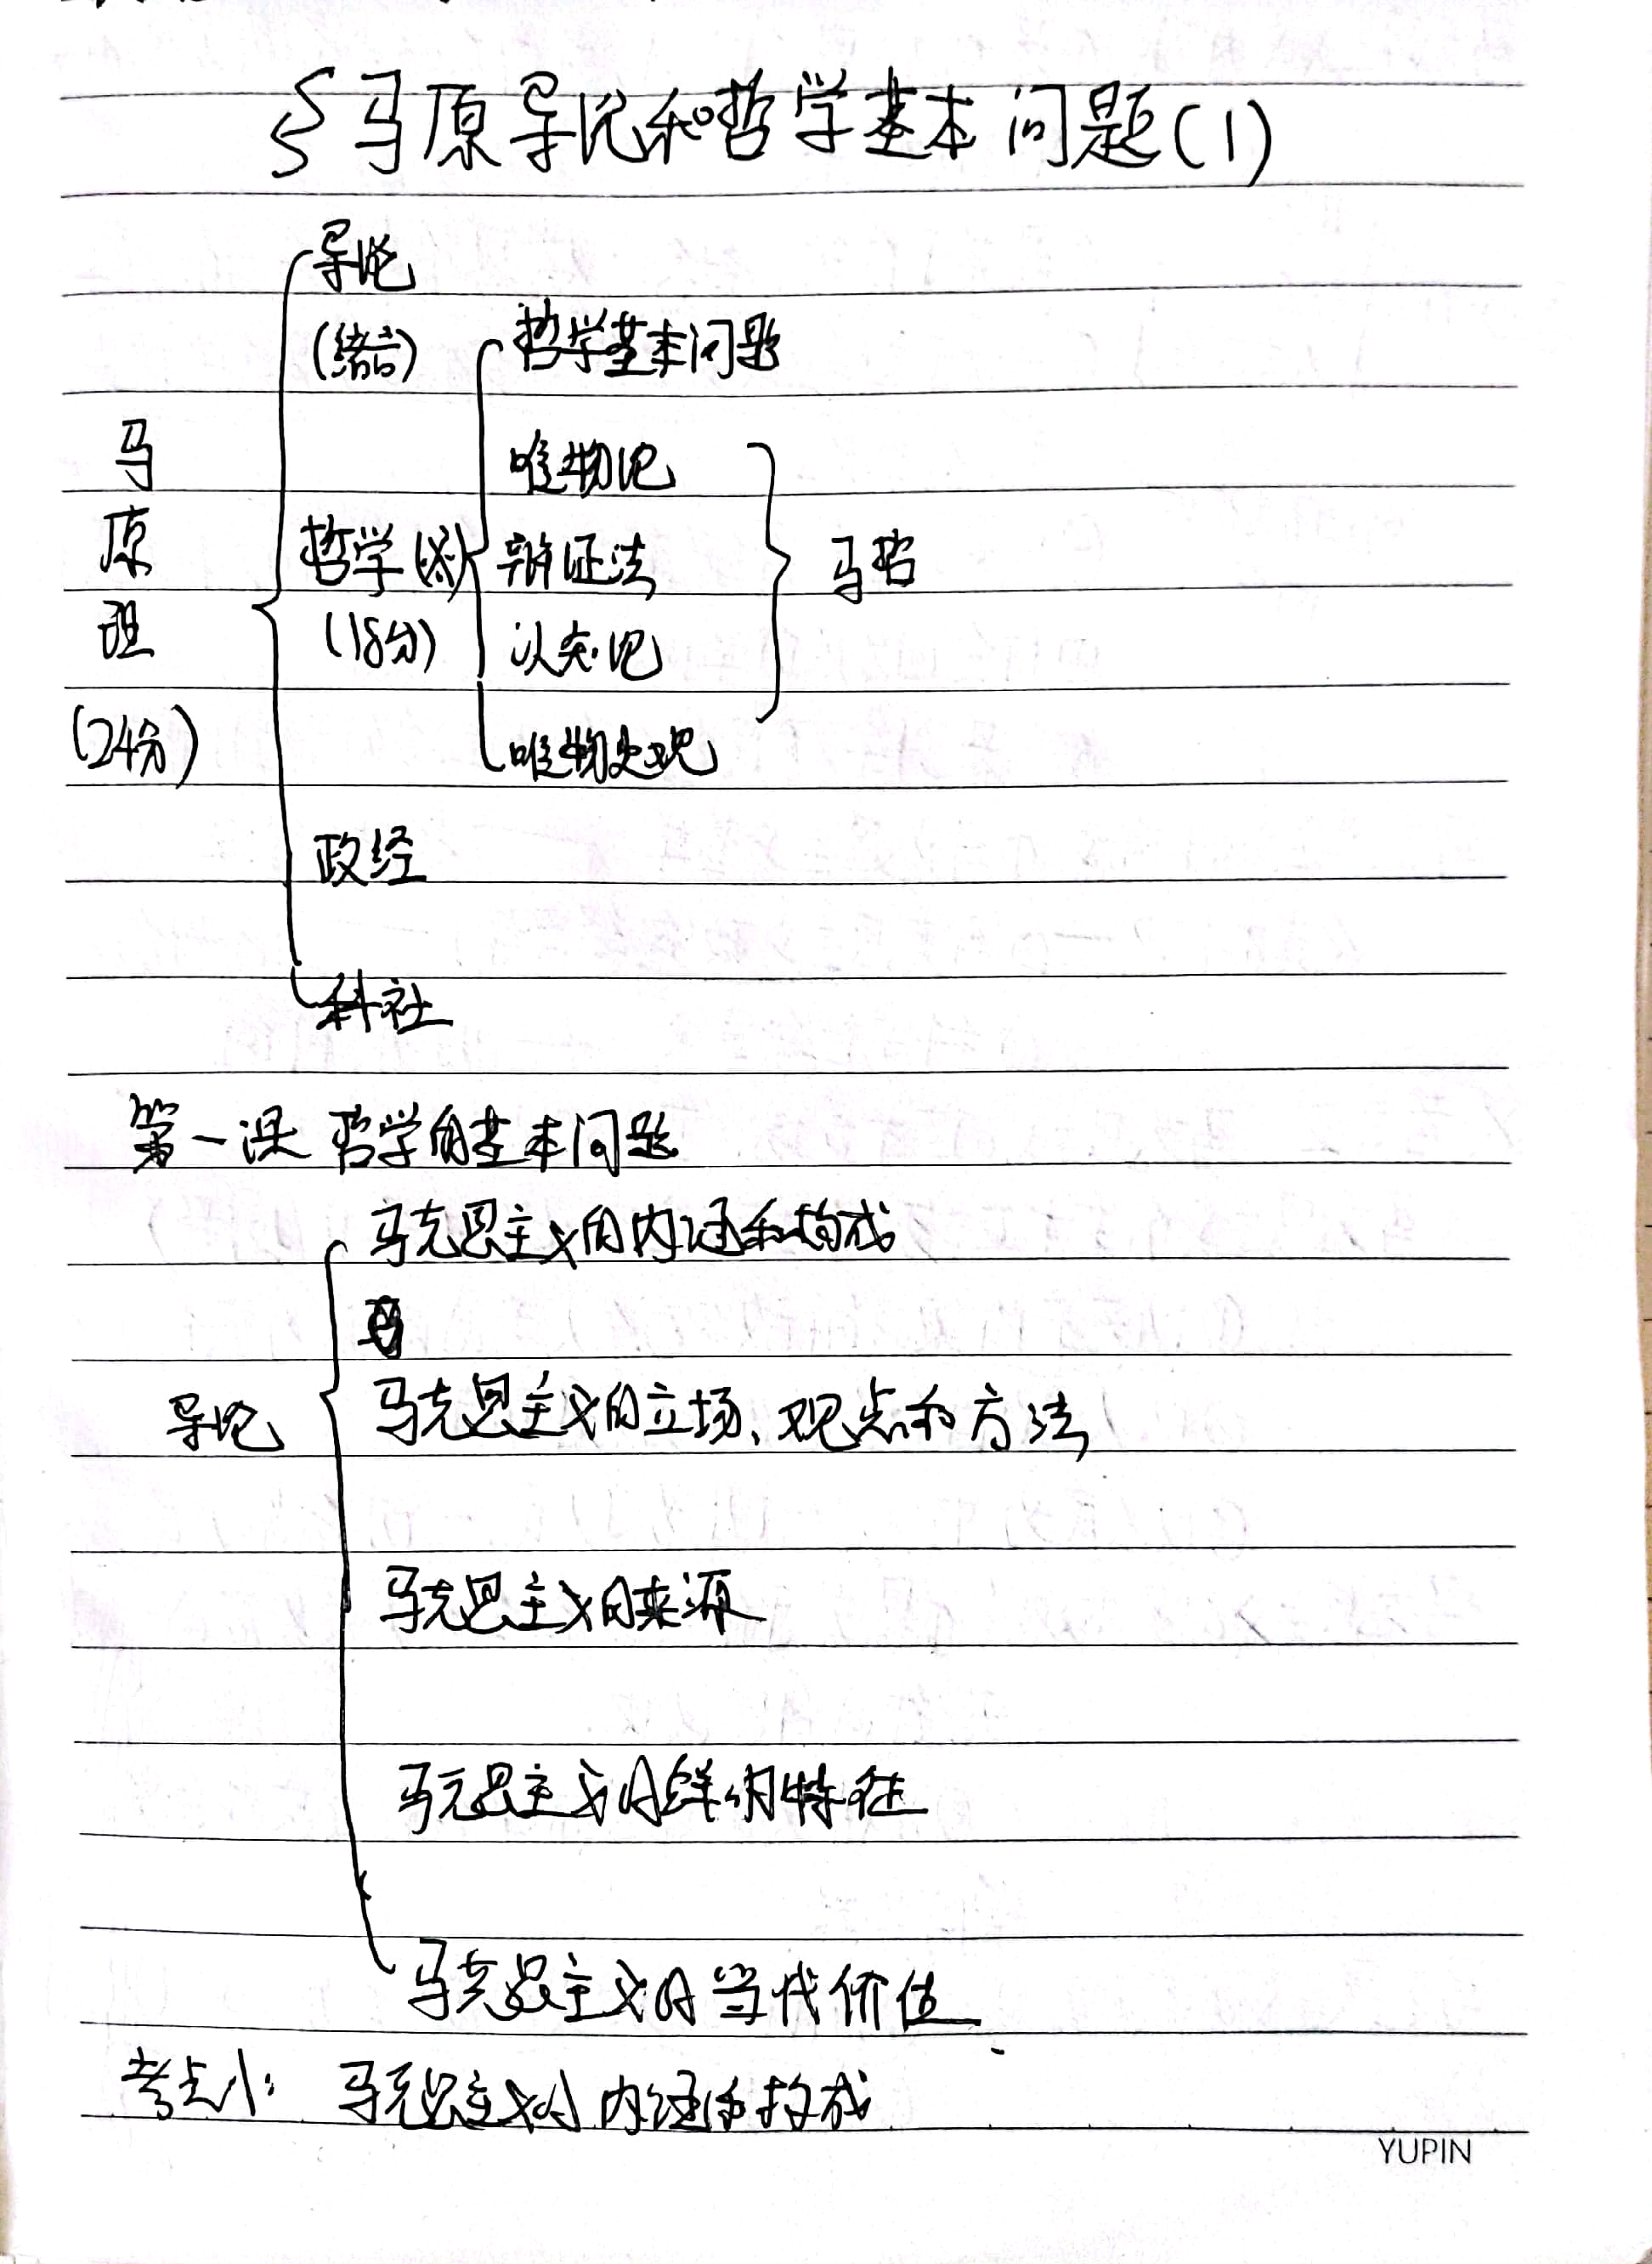 §马原导论和哲学基本问题(1)
导论
(绪言)
哲学基本问题
马
唯物论
原
哲学
辩证法
马哲
理
(18分)
认知论
(24分)
唯物史观
政经
科社
第一课 哲学的基本问题
马克思主义的内涵和构成
马克思主义的立场、观点和方法
导论
马克思主义的来源
马克思主义的鲜明特征
马克思主义的当代价值
考点1: 马克思主义的内涵和构成
YUPIN